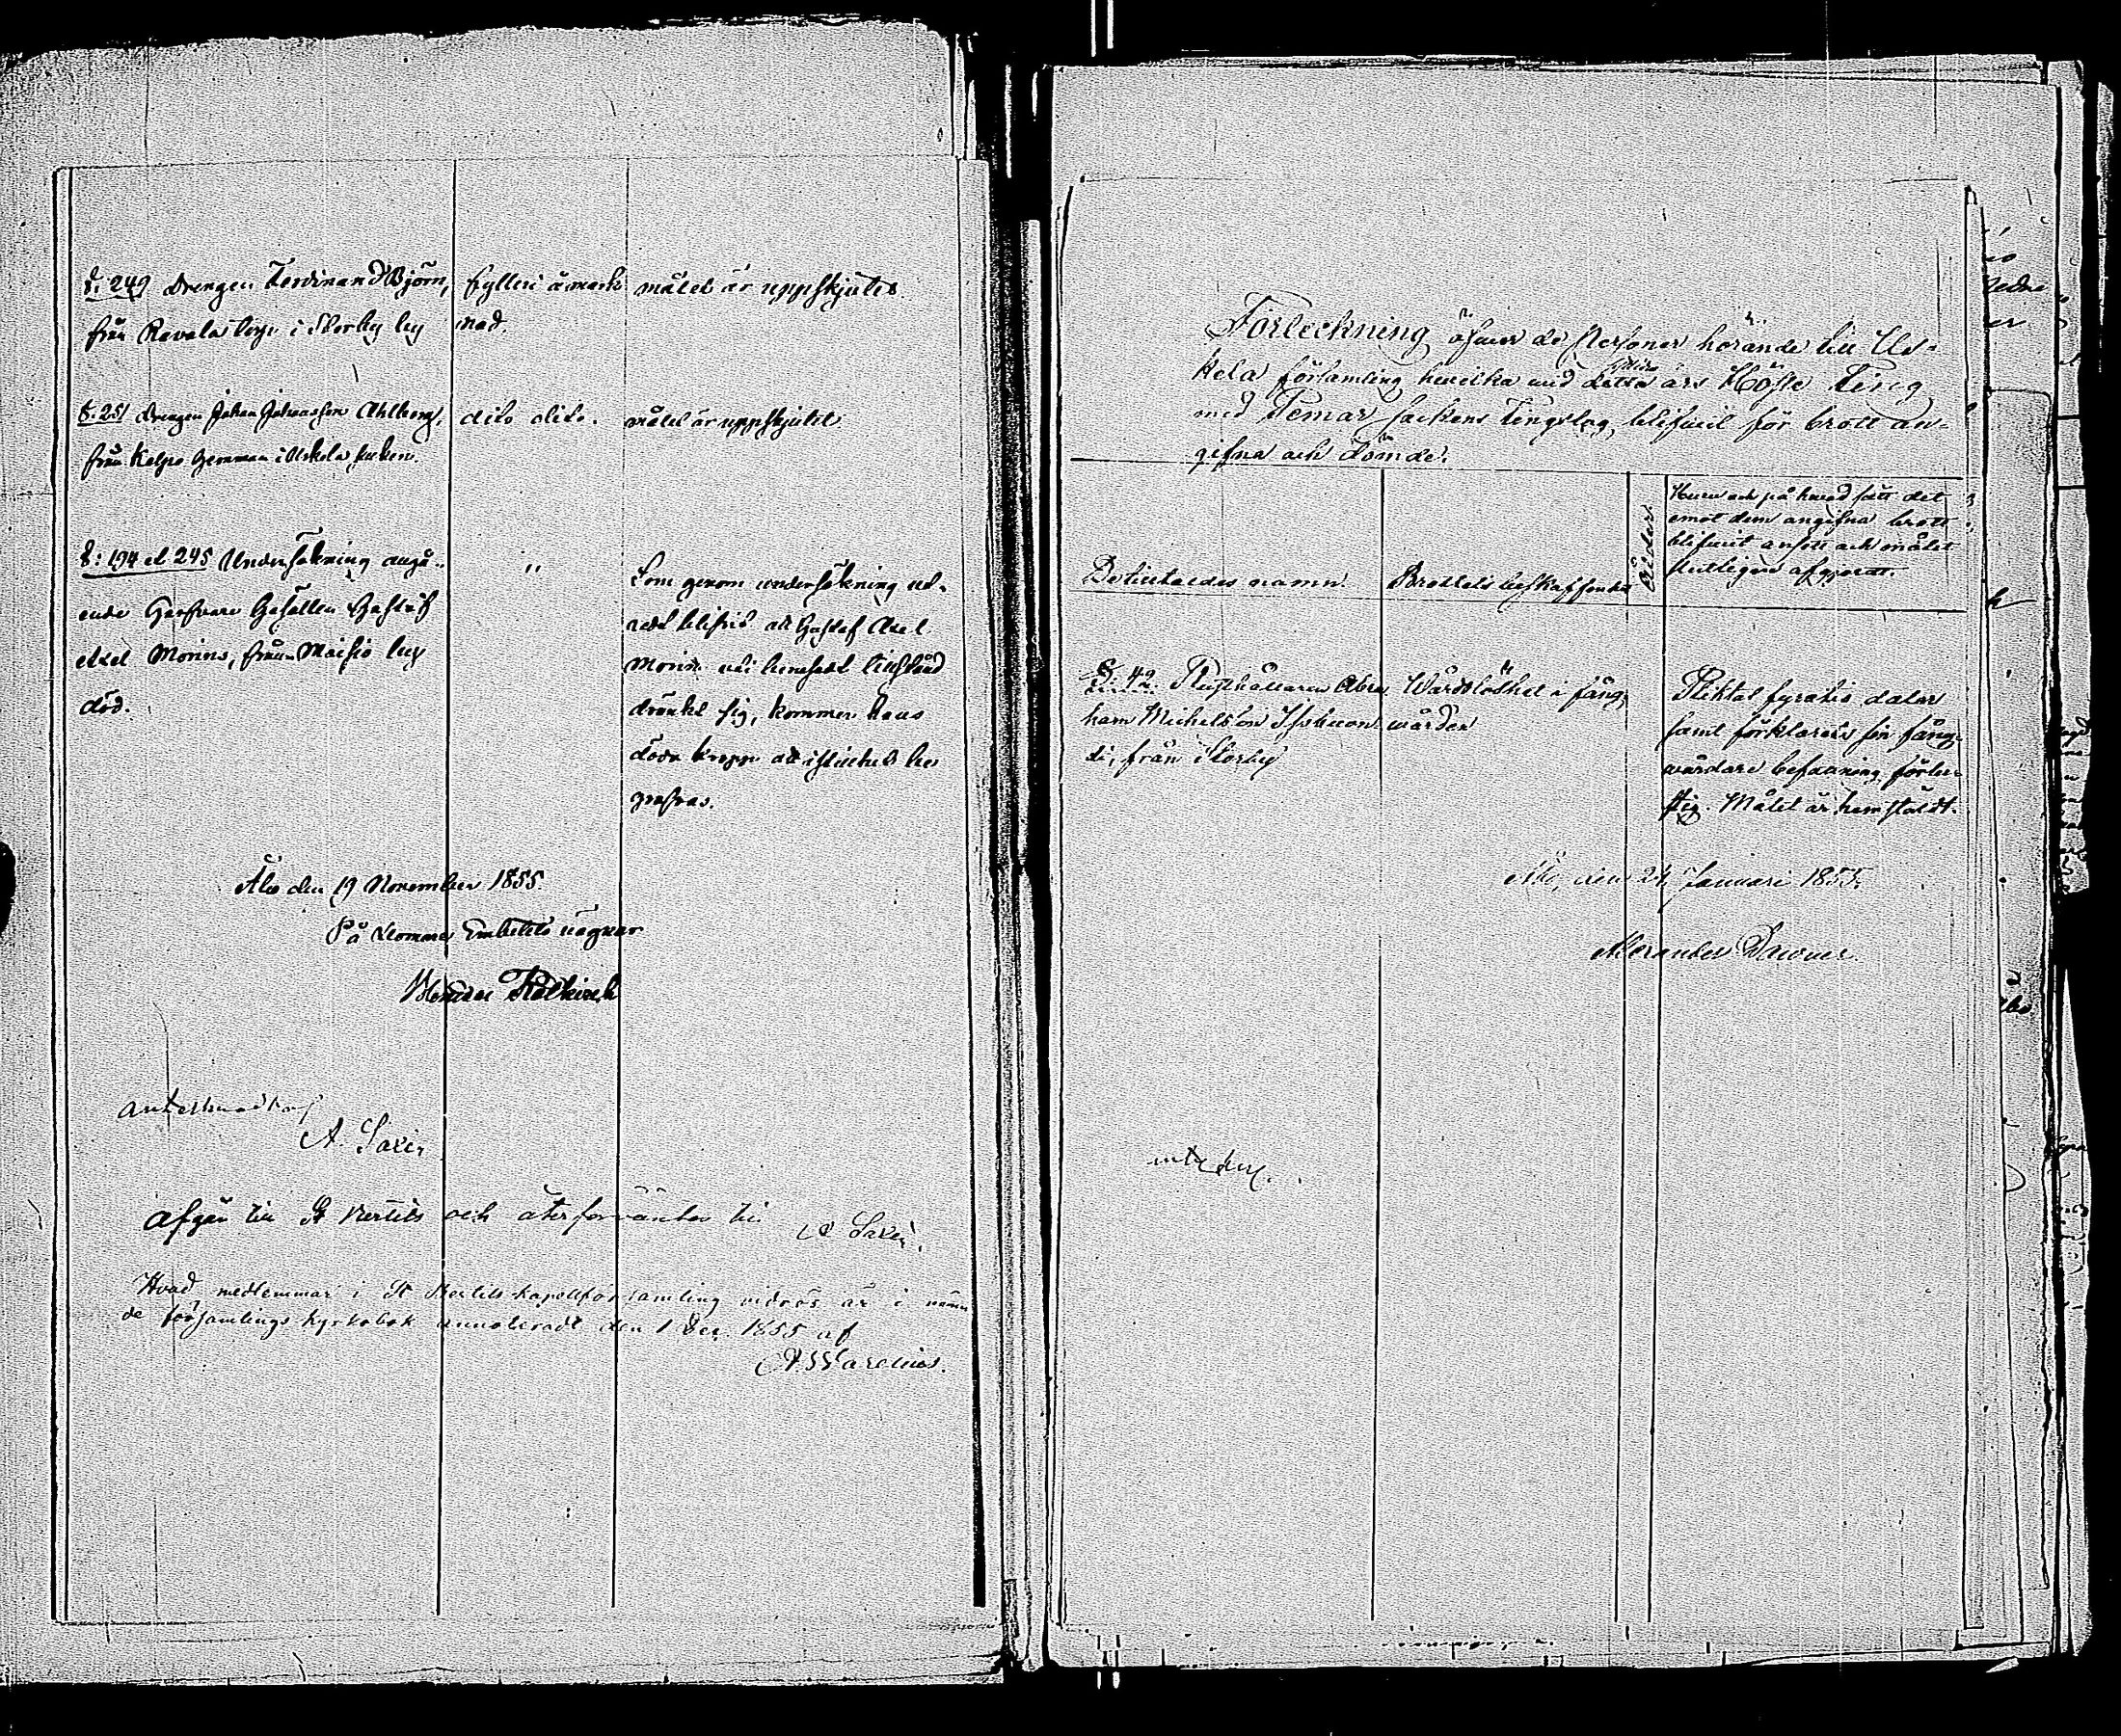 §: 249 Drengen Ferdinand Björn,
från Ravala torp i Storby by
fylleri å mark
nad.
målet är uppskjutet.
§: 251 Drengen Johan Johansson Ahlberg,
från Kelpo hemman i Uskela socken.
dito dito.
målet är uppskjutet
§: 194 et 245 Undersökning angå-
ende Garfvare Gesällen Gustaf
Axel Morins, från Maisio by
död.
"
Som genom undersökning ut-
redt blifvit att Gustaf Axel
Morin uti tillstånd
dränkt sig, kommer hans
döda kropp att i stillhet be
grafvas.
Åbo den 19 November 1855.
På Domare Embetets vägnar
A. Saxén
Afgår till St Bertils och återförväntas till
A Saxén.
Hvad medlemmar i St Bertils kapellförsamling vidrör är i nämn
de församlings kyrkobok annoteradt den 1 Dec. 1855 af
Förteckning öfver de personer hörande till Us-
kela församling hvilka vid sistlidne års Höste Ting
med Pemar sockens Tingslag, blifvit för brott an-
gifna och dömde.
De tilltaldes namn.
Brottets beskaffenhet
Ålder.
Huru och på hvad sätt det
emot dem angifna brott
blifvit ansett och målet
slutligen afgjordt.
§: 42. Rusthållaren Abra
ham Michelsson
di, från Storby
Wårdslöshet i fång-
wården
Pliktat fyratio daler
samt förklarats sin fång-
wårdare befattning förlu-
stig. Målet är hemstäldt.
Åbo, den 24 Januari 1855.
Alexander